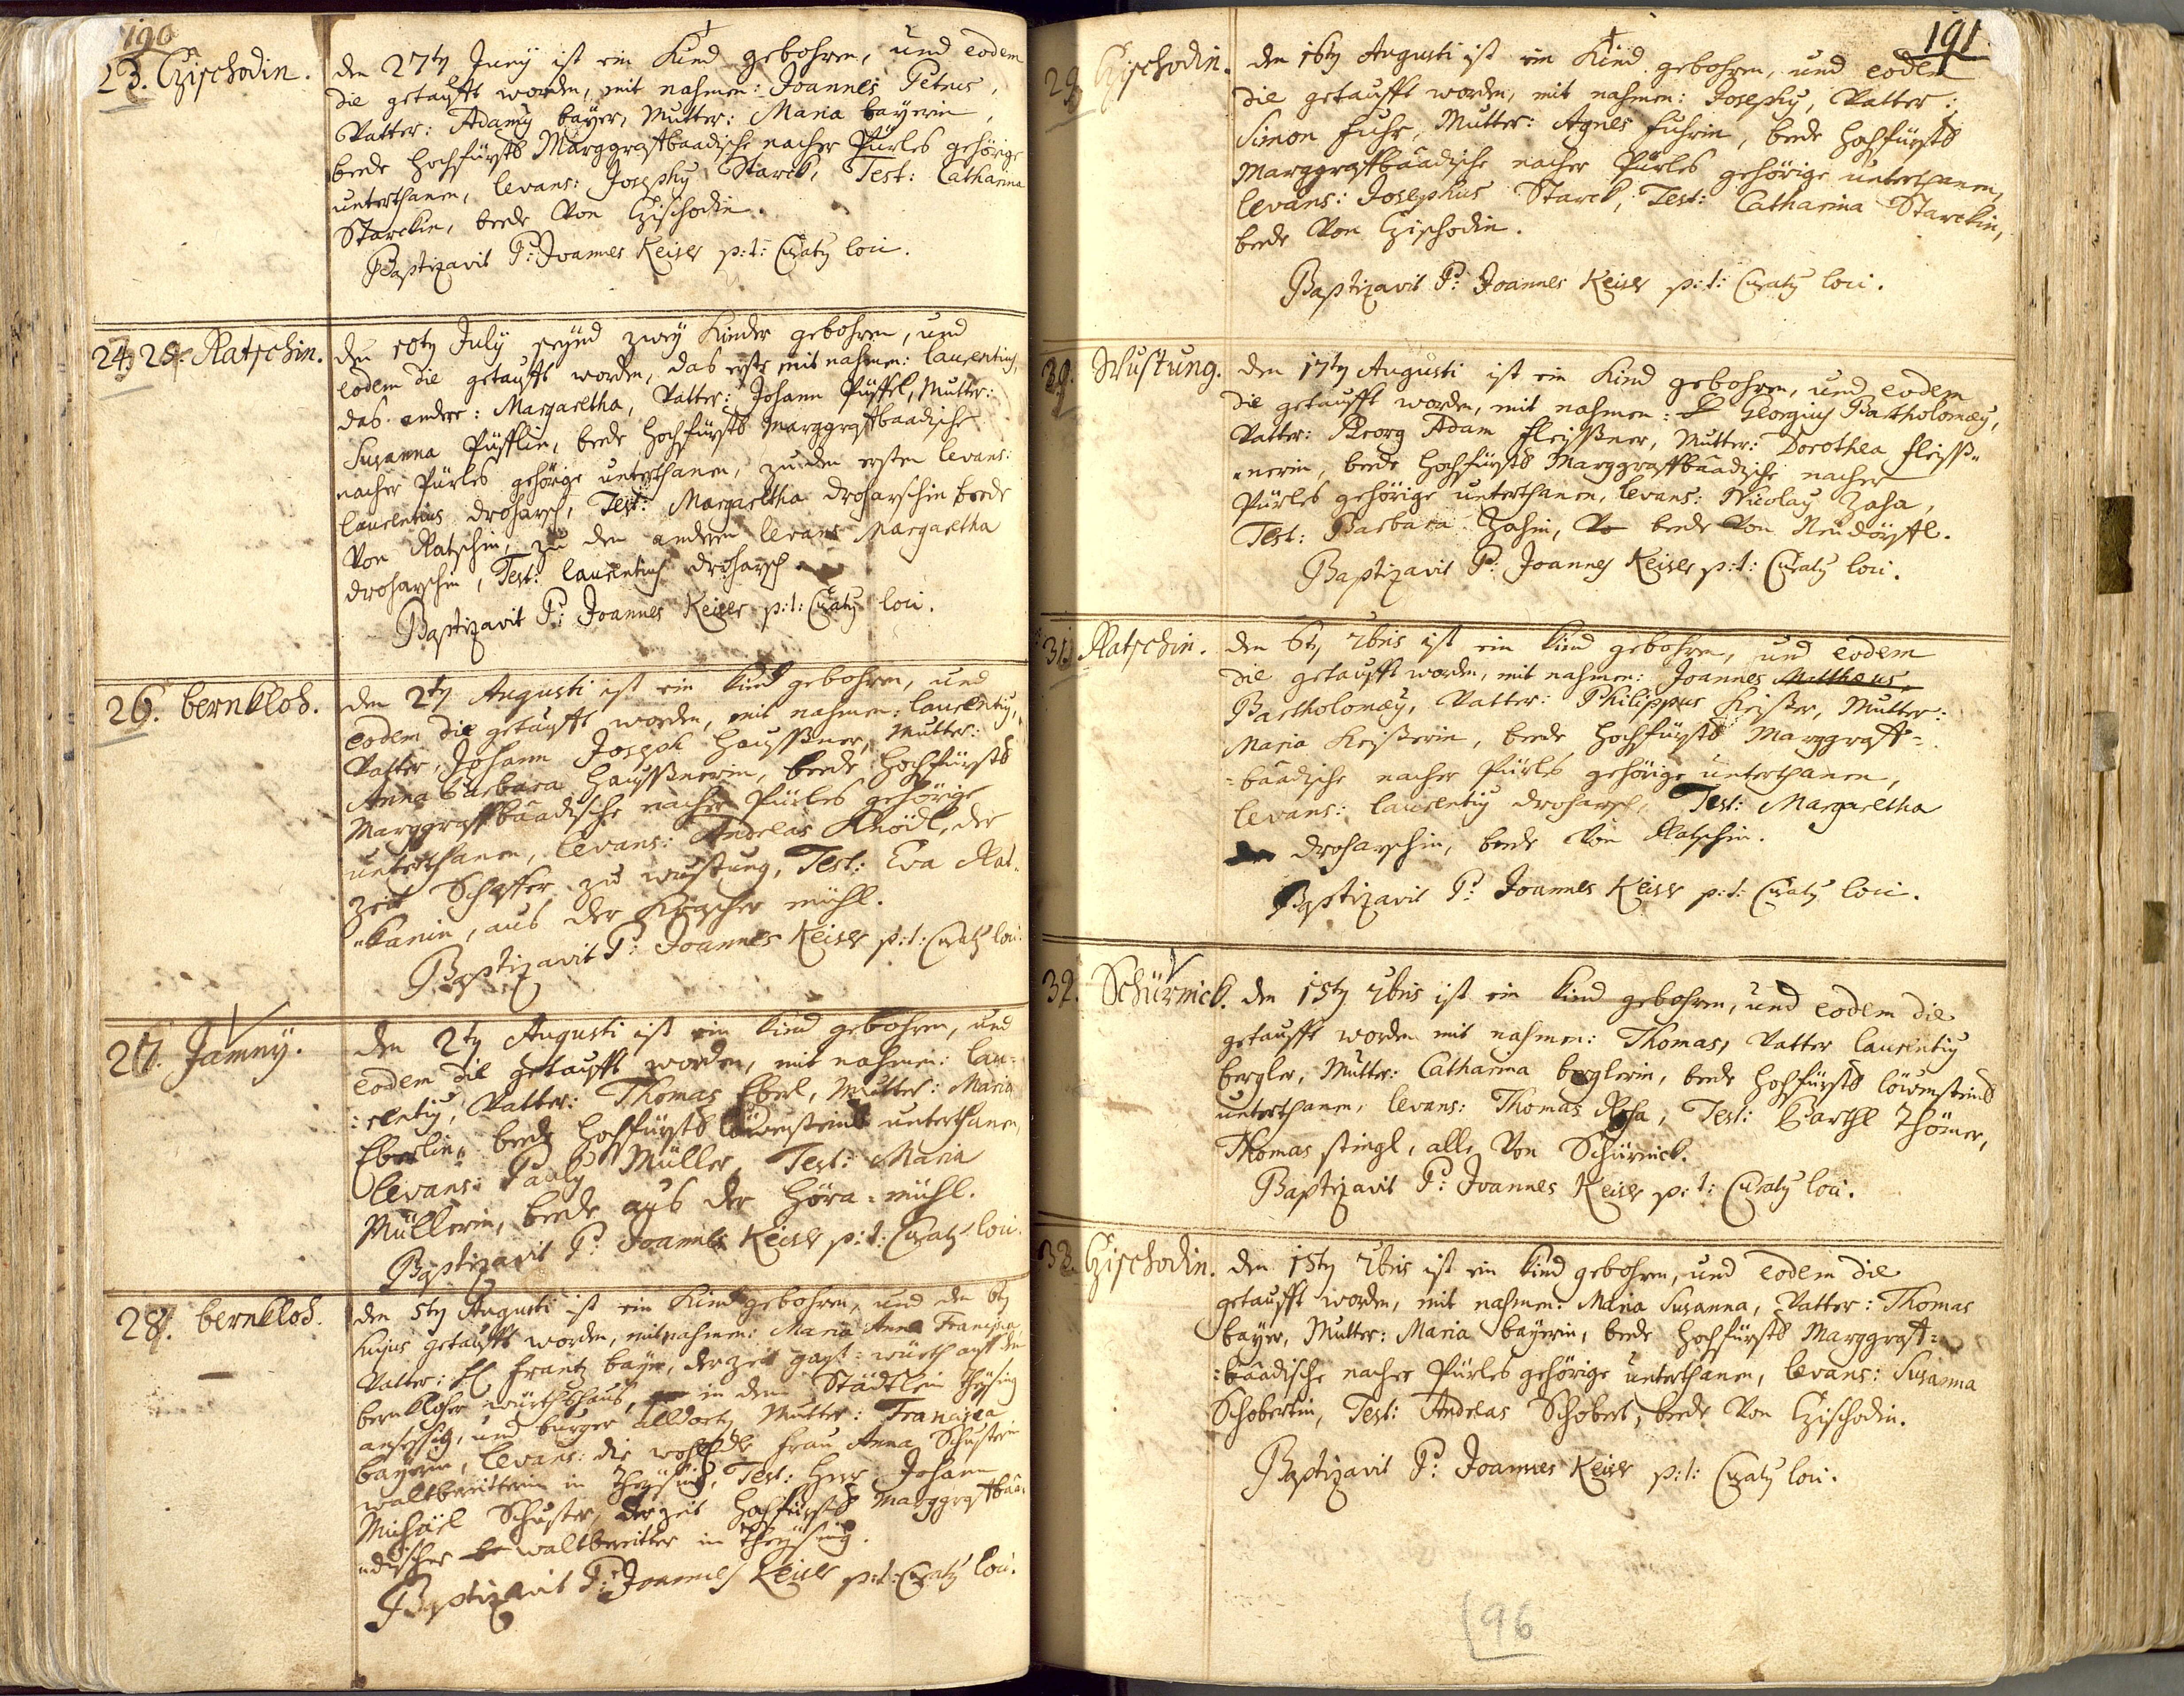 190
23. Czischodin.
den 27ty Juny ist ein Kind gebohren, und eodem
die getaufft worden, mit nahmen: Joannes Petrus,
Vatter: Adamy bayer, Mutter: Maria bayerin,
beede Hochfürstl Marggraffbaadische nacher Pürles gehörige
unterthanen, levans: Josephy Starck, Test: Catharina
Starckin, beede Von Czischodin.
Baptizavit P: Joannes Keiser p:t: Curaty loci.
24. 25. Ratschin.
den 10ty July seynd zwey Kinder gebohren, und
eodem die getaufft worden, das erste mit nahmen: laurentius,
das andere: Margaretha, Vatter: Johann Püffel, Mutter:
Susanna Püfflin, beede Hochfürstl Marggraffbaadische
nacher Pürles gehörige unterthanen, zu den ersten levans:
laurentius droharsch, Test: Margaretha droharschin beede
Von Ratschin, zu den anderen levans Margaretha
droharschin, Test: laurentius droharsch.
Baptizavit P: Joannes Keiser p:t: Curaty loci.
26. bernklod.
den 2ty Augusti ist ein Kind gebohren, und
eodem die getaufft worden, mit nahmen: laurenty,
Vatter, Johann Joseph Haussner, Mutter:
Anna barbara Haussnerin, beede Hochfürstl
Marggraffbaadische nacher Pürles gehörige
unterthanen, levans: Andreas Knödl, der
zeit Schaffer zu wustung, Test: Eva
aus der mühl.
Baptizavit P: Joannes Keiser p:t: Curaty loci.
27. Jamny.
den 2ty Augusti ist ein Kind gebohren, und
eodem die getaufft worden, mit nahmen: lau-
:renty, Vatter: Thomas Eberl, Mutter: Maria
Eberlin, beede Hochfürstl löwensteinl unterthanen,
levans: Pauly Müller, Test: Maria
Müllerin, beede aus der Höra=mühl.
Baptizavit P: Joannes Keiser p:t: Curaty loci.
28. bernklod.
den 5ty Augusti ist ein Kind gebohren, und den 6ty
hujus getaufft worden, mit nahmen: Maria Anna Francisca
Vatter: H Frantz bayer, derzeit gast=würth auff den
bernkloher würthshaus, in dem Städtlein Theysing
ansessig, und burger alldorty Mutter: Francisca
bayerin, levans: die wohl frau Anna Schusterin
waltbereitterin in Theysing, Test: Herr Johann
Michäel Schuster, derzeit Hochfürstl Marggraffbaa-
-discher waltbereitter in Theysing.
Baptizavit P: Joannes Keiser p:t: Curaty loci.
191
29. Czischodin.
den 16ty Augusti ist ein Kind gebohren, und eodem
die getaufft worden, mit nahmen: Josephy, Vatter:
Simon fuhr, Mutter: Agnes fuhrin, beede Hochfürstl
Marggraffbaadische nacher Pürles gehörige unterthanen,
levans: Josephus Starck, Test: Catharina Starckin,
beede Von Czischodin.
Baptizavit P: Joannes Keiser p:t: Curaty loci.
30. Wustung.
den 17ty Augusti ist ein Kind gebohren, und eodem
die getaufft worden, mit nahmen: Georgius Bartholomæy,
Vatter: Georg Adam fleissner, Mutter: Dorothea fleiss=
=nerin, beede Hochfürstl Marggraffbaadische nacher
Pürles gehörige unterthanen, levans: Nicolay Zaha,
Test: Barbara Zahin, beede Von Neudörffl.
Baptizavit P: Joannes Keiser p:t: Curaty loci.
31. Ratschin.
den 6ty 7bris ist ein Kind gebohren, und eodem
die getaufft worden, mit nahmen: Joannes Mattheus,
Bartholomæy, Vatter: Philippus Keiser, Mutter:
Maria Keiserin, beede Hochfürstl Marggraff=
=baadische nacher Pürles gehörige unterthanen,
levans: laurenty droharsch, Test: Margaretha
droharschin, beede Von Ratschin.
Baptizavit P: Joannes Keiser p:t: Curaty loci.
32. Schürnick.
den 15ty 7bris ist ein Kind gebohren, und eodem die
getaufft worden mit nahmen: Thomas, Vatter laurenty
bergler, Mutter: Catharina berglerin, beede Hochfürstl löwensteinl
unterthanen, levans: Thomas Test: Barthl Thömer,
Thomas stingl, alle Von Schürnick.
Baptizavit P: Joannes Keiser p:t: Curaty loci.
33. Czischodin.
den 15ty 7bris ist ein Kind gebohren, und eodem die
getaufft worden, mit nahmen: Maria Susanna, Vatter: Thomas
bayer, Mutter: Maria bayerin, beede Hochfürstl Marggraff=
=baadische nacher Pürles gehörige unterthanen, levans: Susanna
Schobertin, Test: Andreas Schobert, beede Von Czischodin.
Baptizavit P: Joannes Keiser p:t: Curaty loci.
96